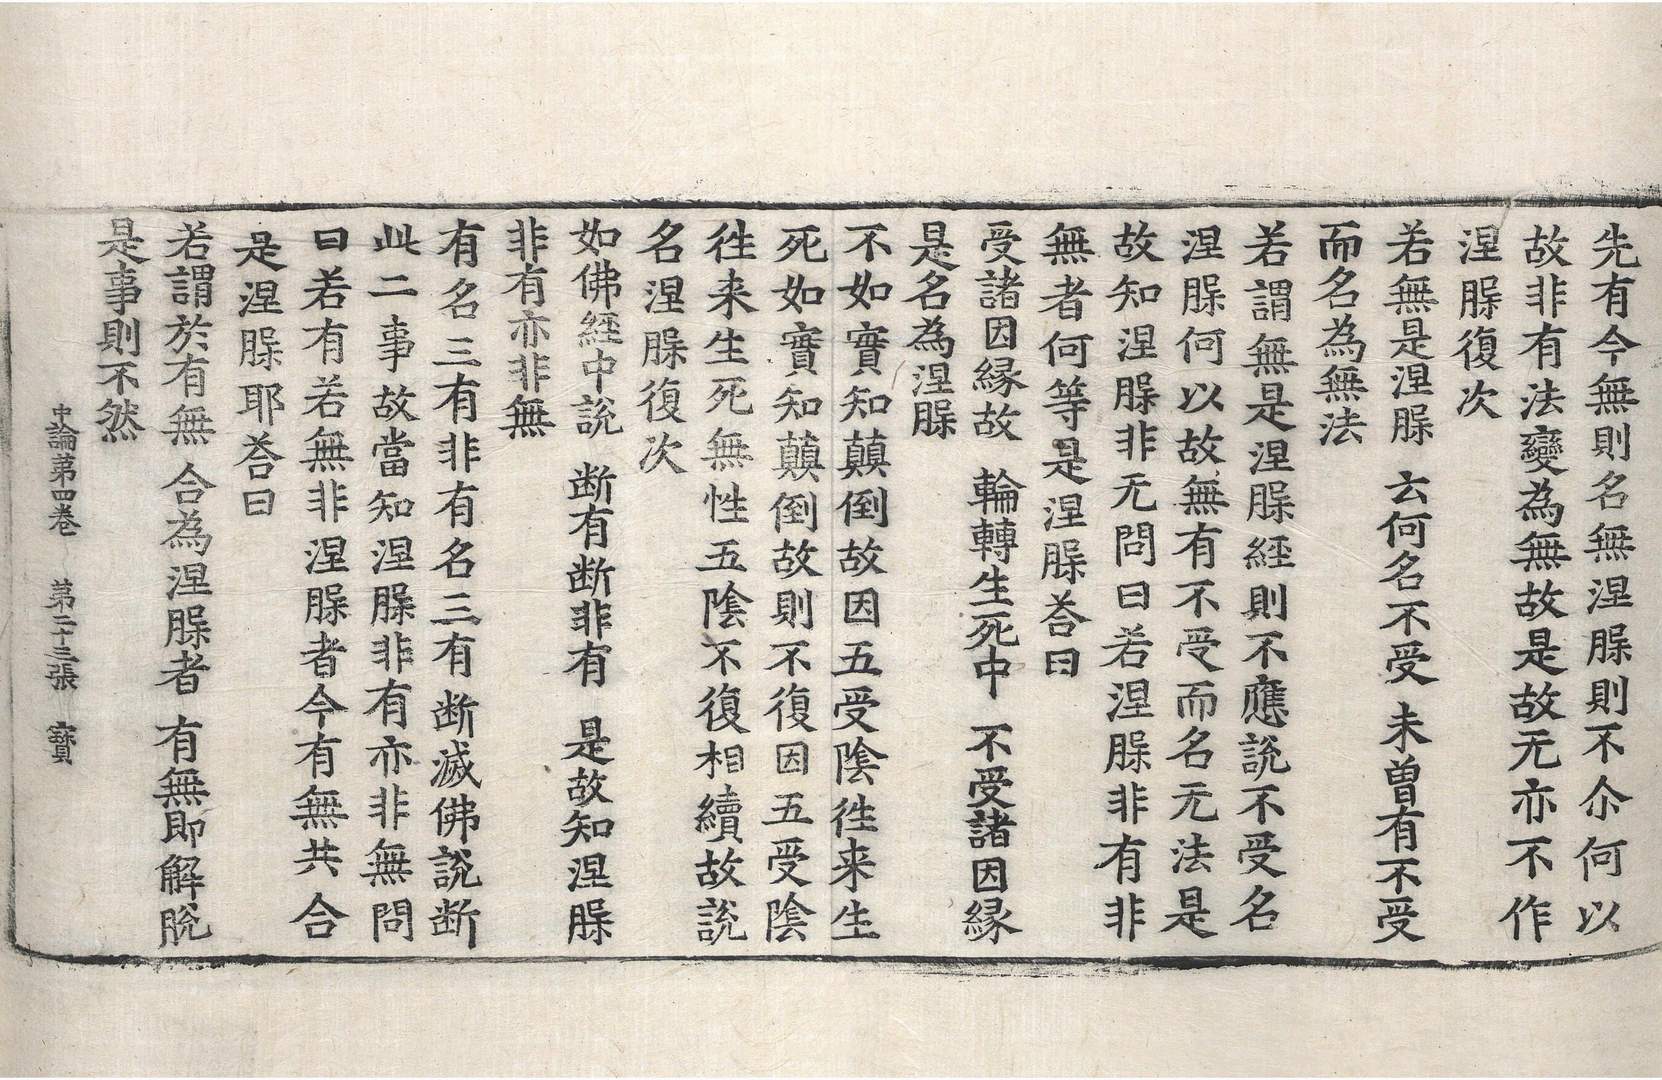 先有今無則名無涅槃則不尒何以
故非有法變為無故是故无亦不作
涅槃復次
若無是涅槃 云何名不受 未曽有不受
而名為無法
若謂無是涅槃經則不應說不受名
涅槃何以故無有不受而名无法是
故知涅槃非无問曰若涅槃非有非
無者何等是涅槃荅曰
受諸因縁故 輪轉生死中 不受諸因縁
是名為涅槃
不如實知顛倒故因五受陰徃来生
死如實知顛倒故則不復因五受陰
徃来生死無性五陰不復相續故說
名涅槃復次
如佛經中說 断有断非有 是故知涅槃
非有亦非無
有名三有非有名三有断滅佛說断
此二事故當知涅槃非有亦非無問
曰若有若無非涅槃者今有無共合
是涅槃耶荅曰
若謂於有無 合為涅槃者 有無即解脫
是事則不然
中論第四卷 第二十三張 寳